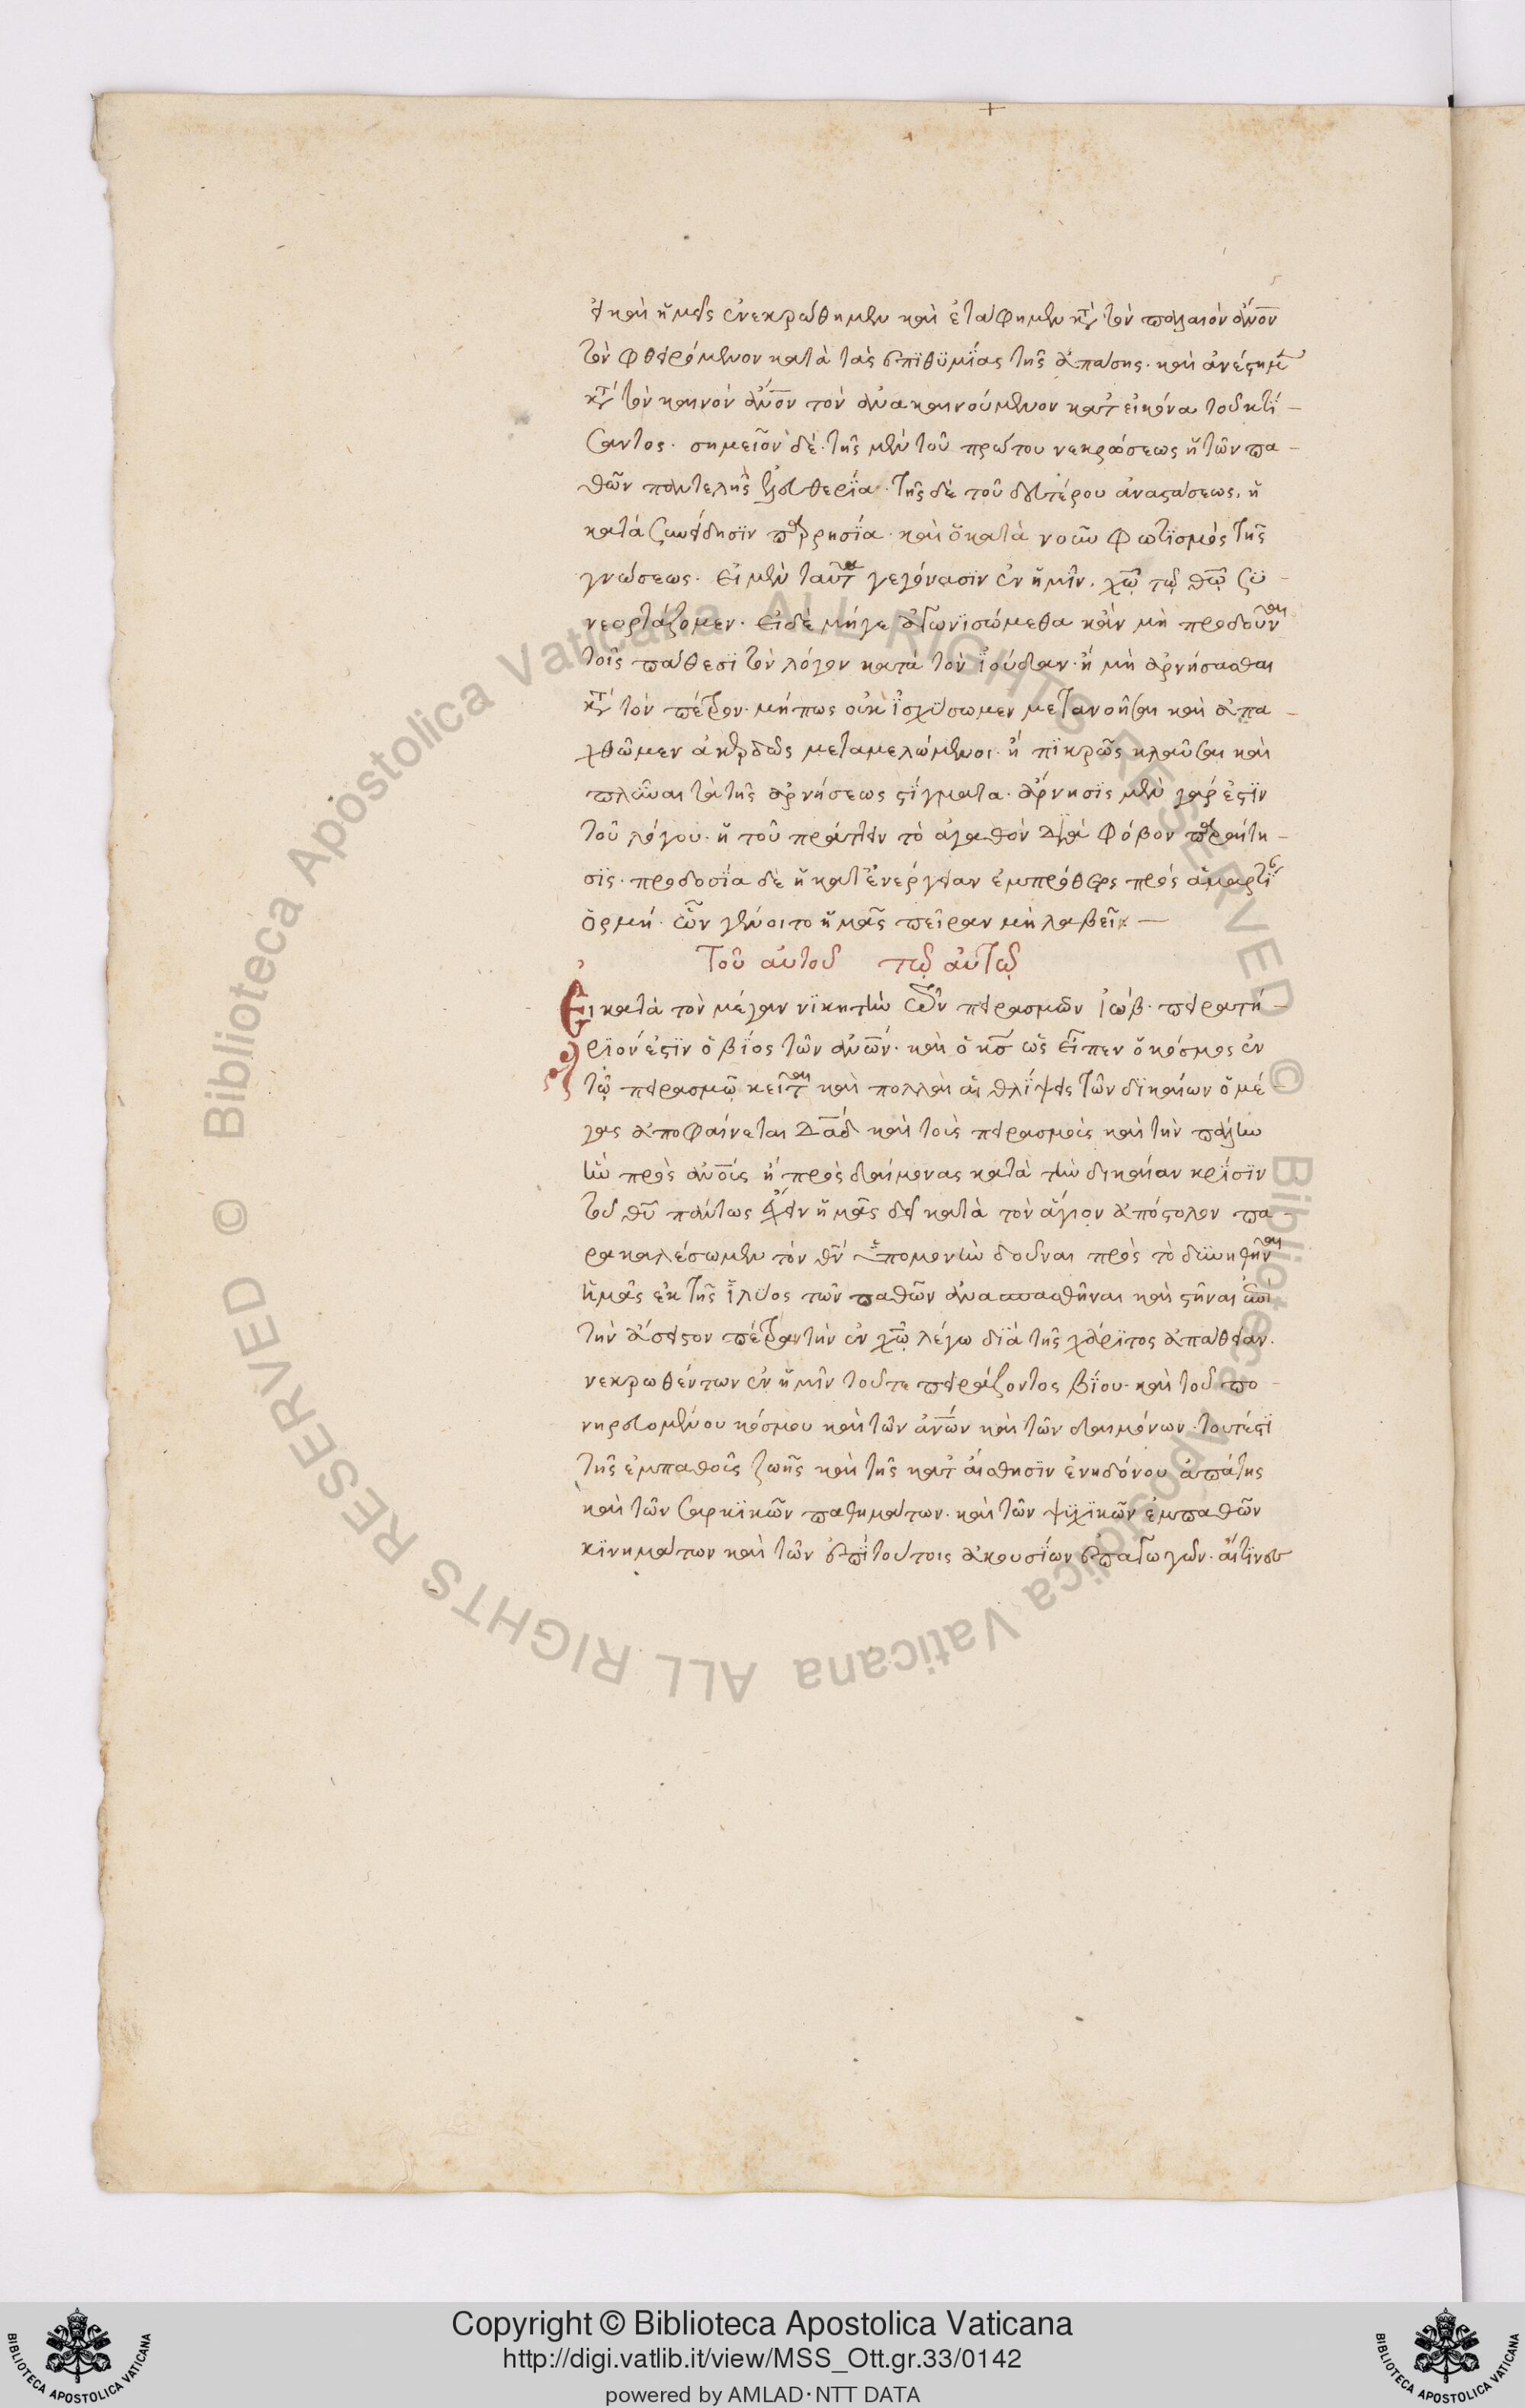 εἰ καὶ ἡμεῖς ἐνεκρώθημεν καὶ ἐτάφημεν κτ̀ τὸν παλαιὸν ἄνον
τὸν φθειρόμενον κατὰ τὰς ἐπϊθϋμΐας τῆς ἀπάσης· καὶ ἀνέστημ
κτ̀ τὸν καινὸν ἄνον τὸν ἀνακαινούμενον κατ εἰκόνα τοῦ κτί –
σαντος· σημεῖον δὲ· τῆς μὲν τοῦ πρώτου νεκρώσεως ἡ τῶν πα –
θῶν παντελὴς ἐλευθερΐα· τῆς δὲ τοῦ δευτέρου ἀναστάσεως, ἡ
κατὰ συνείδησϊν παρρησΐα· καὶ ὁ κατὰ νοῦν φωτϊσμὸς τῆς
γνώσεως· εἰ μὲν ταῦτα γεγόνασϊν ἐν ἡμῖν, χῶ τῶ θῶ σϋ –
νεορτάζομεν· εἰ δὲ μήγε ἀγωνϊσώμεθα κἂν μὴ προδοῦναι
τοῖς πάθεσϊ τὸν λόγον κατὰ τὸν ϊούδαν· ἢ μὴ ἀρνήσασθαι
κτ̀ τὸν πέτρον· μήπως οὐκ ϊσχϋσωμεν μετανοῆσαι καὶ ἀπα –
χθῶμεν ἀκερδῶς μεταμελώμενοι· ἢ πϊκρῶς κλαῦσαι καὶ
πλῦναι τὰ τῆς ἀρνήσεως στΐγματα· ἄρνησϊς μὲν γάρ ἐστϊν
τοῦ λόγου· ἡ τοῦ πράττειν τὸ ἀγαθὸν δϊὰ φόβον παραίτη –
σϊς· προδοσΐα δὲ ἡ κατ ἐνέργειαν ἐμπρόθεσμος πρὸς ἁμαρτΐ
ὁρμή· ὧν γένοιτο ἡμᾶς πεῖραν μὴ λαβεῖν —
Τοῦ αὐτοῦ τῶ αὐτῶ
Εἰ κατὰ τὸν μέγαν νϊκητὴν τῶν πειρασμῶν ϊώβ· πειρατή –
ρϊον ἐστϊν ὁ βΐος τῶν ἀνων· καὶ ὁ κσ ὡς εἶπεν ὁ κόσμος ἐν
τῶ πειρασμῶ κεῖται καὶ πολλαὶ αἱ θλΐψεις τῶν δϊκαίων ὁ μέ –
γας ἀποφαίνεται δαδ καὶ τοῖς πειρασμοῖς καὶ τὴν πάλην
τὴν πρὸς ἀνοις ἢ πρὸς δαίμονας κατὰ τὴν δικαίαν κρΐσϊν
τοῦ θυ πάντως ἔχειν ἡμᾶς δεῖ κατὰ τὸν ἅγιον ἀπόστολον πα
ρακαλέσωμεν τὸν θν ὑπομονὴν δοῦναι πρὸς τὸ δϋνηθῆναι
ἡμᾶς ἐκ τῆς ϊλϋος τῶν παθῶν ἀνασπασθῆναι καὶ στῆναι ἐπὶ
τὴν ἄσειστον πέτραν τὴν ἐν χῶ λέγω δϊὰ τῆς χάρϊτος ἀπάθειαν·
νεκρωθέντων ἐν ἡμῖν τοῦ τε πειράζοντος βΐου· καὶ τοῦ πο –
νηρευομένου κόσμου καὶ τῶν ἀνων καὶ τῶν δαιμόνων· τουτέστϊ
τῆς ἐμπαθοῦς ζωῆς καὶ τῆς κατ αἴσθησϊν ἐνηδόνου ἀπάτης
καὶ τῶν σαρκϊκῶν παθημάτων· καὶ τῶν ψϋχϊκῶν ἐμπαθῶν
κϊνημάτων καὶ τῶν ἐπϊ τούτοις ἀκουσΐων ἐπαγωγῶν· αἵτϊνες
Copyright © Biblioteca Apostolica Vaticana
http://digi.vatlib.it/view/MSS_Ott.gr.33/0142
powered by AMLAD·NTT DATA
BIBLIOTECA APOSTOLICA VATICANA
BIBLIOTECA APOSTOLICA VATICANA
© Biblioteca Apostolica Vaticana ALL RIGHTS RESERVED
© Biblioteca Apostolica Vaticana ALL RIGHTS RESERVED